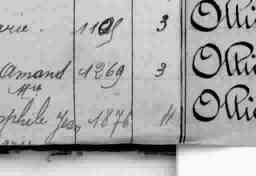 arie. 1109 3 Olli
Amand 1269 3 Olli
ophile Jean 1876 11 Olli